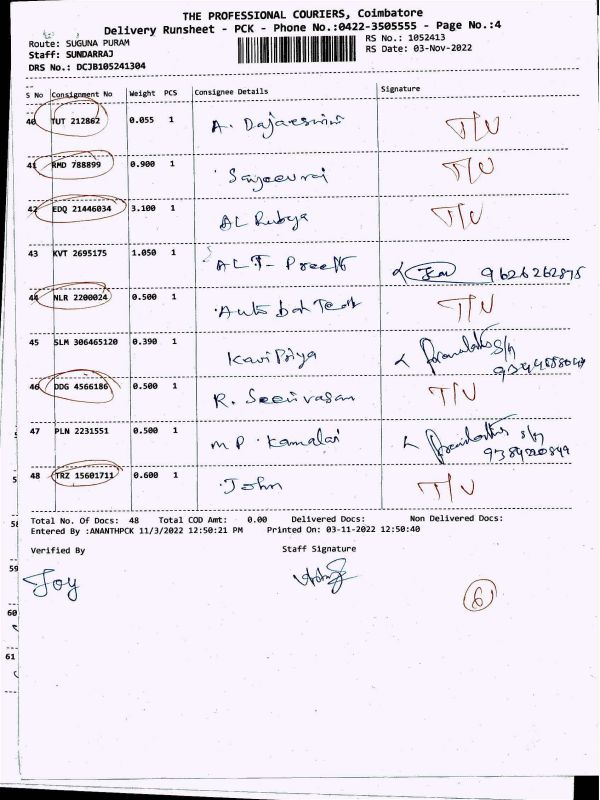 THE PROFESSIONAL COURIERS, Coimbatore
Delivery Runsheet - PCK - Phone No.:0422-3505555 - Page No.:4
Route: SUGUNA PURAM
RS No.: 1052413
Staff: SUNDARRAJ
RS Date: 03-Nov-2022
DRS No.: DCJB105241304
S No Consignment No Weight PCS Consignee Details Signature
40 TUT 212862 0.055 1 A. T/U
41 RMD 788899 0.900 1 Sanjeevraj T/U
42 EDQ 21446034 3.100 1 AL Rubya T/U
43 KVT 2695175 1.050 1 9626262875
44 NLR 2200024 0.500 1 T/U
45 SLM 306465120 0.390 1 Kavi Priya
46 DDG 4566186 0.500 1 R. Seenivasan T/U
47 PLN 2231551 0.500 1 M P. Kamalan
48 TRZ 15601711 0.600 1 John T/U
Total No. Of Docs: 48 Total COD Amt: 0.00 Delivered Docs: Non Delivered Docs:
Entered By :ANANTHPCK 11/3/2022 12:50:21 PM Printed On: 03-11-2022 12:50:40
Verified By Staff Signature
Joy
6
58
59
60
61